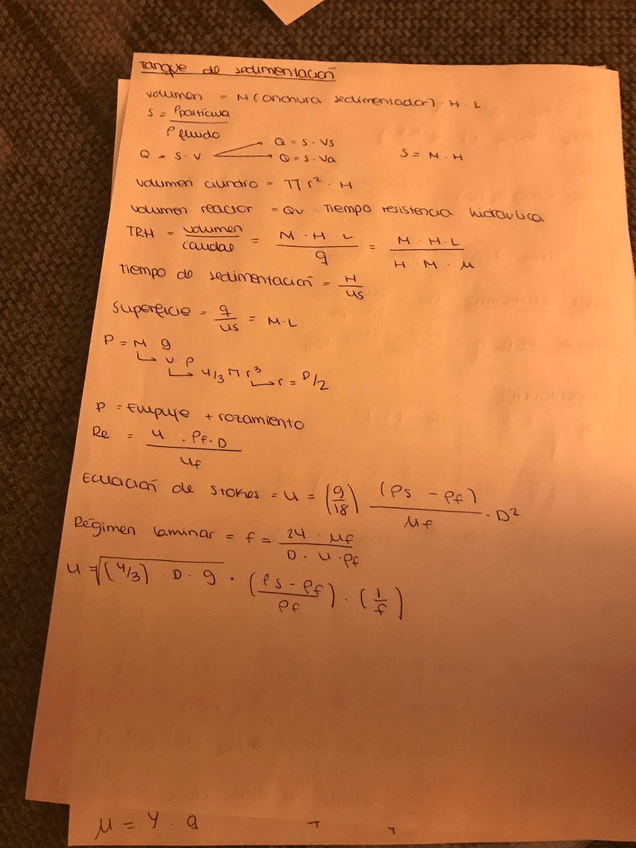 Tanque de sedimentación
volumen = M (anchura sedimentador) · H · L
S = ρ partícula / ρ fluido
Q = S · V → Q = S · Vs
→ Q = S · Va
S = M · H
volumen cilindro = π r² · H
volumen reactor = Qv · Tiempo resistencia hidraulica
TRH = volumen / caudal = M · H · L / q = M · H · L / H · M · μ
Tiempo de sedimentación = H / us
Superficie = q / us = M · L
P = M g
↳ v · ρ
↳ 4/3 π r³
↳ r = D/2
P = Empuje + rozamiento
Re = u · ρf · D / μf
Ecuación de Stokes = u = (g/18) (ρs - ρf) / μf · D²
Régimen laminar = f = 24 · μf / D · u · ρf
u = √(4/3) · D · g · (ρs - ρf / ρf) · (1/f)
μ = 4 · g